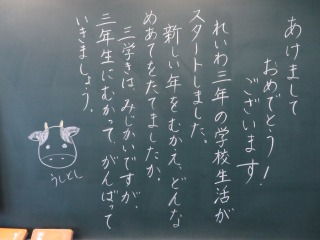 あけまして
おめでとう！
ございます。
れいわ三年の学校生活が
スタートしました。
新しい年をむかえ、どんな
めあてをたてましたか。
三学きは、みじかいですが、
三年生にむかって、がんばって
いきましょう。
うしとし